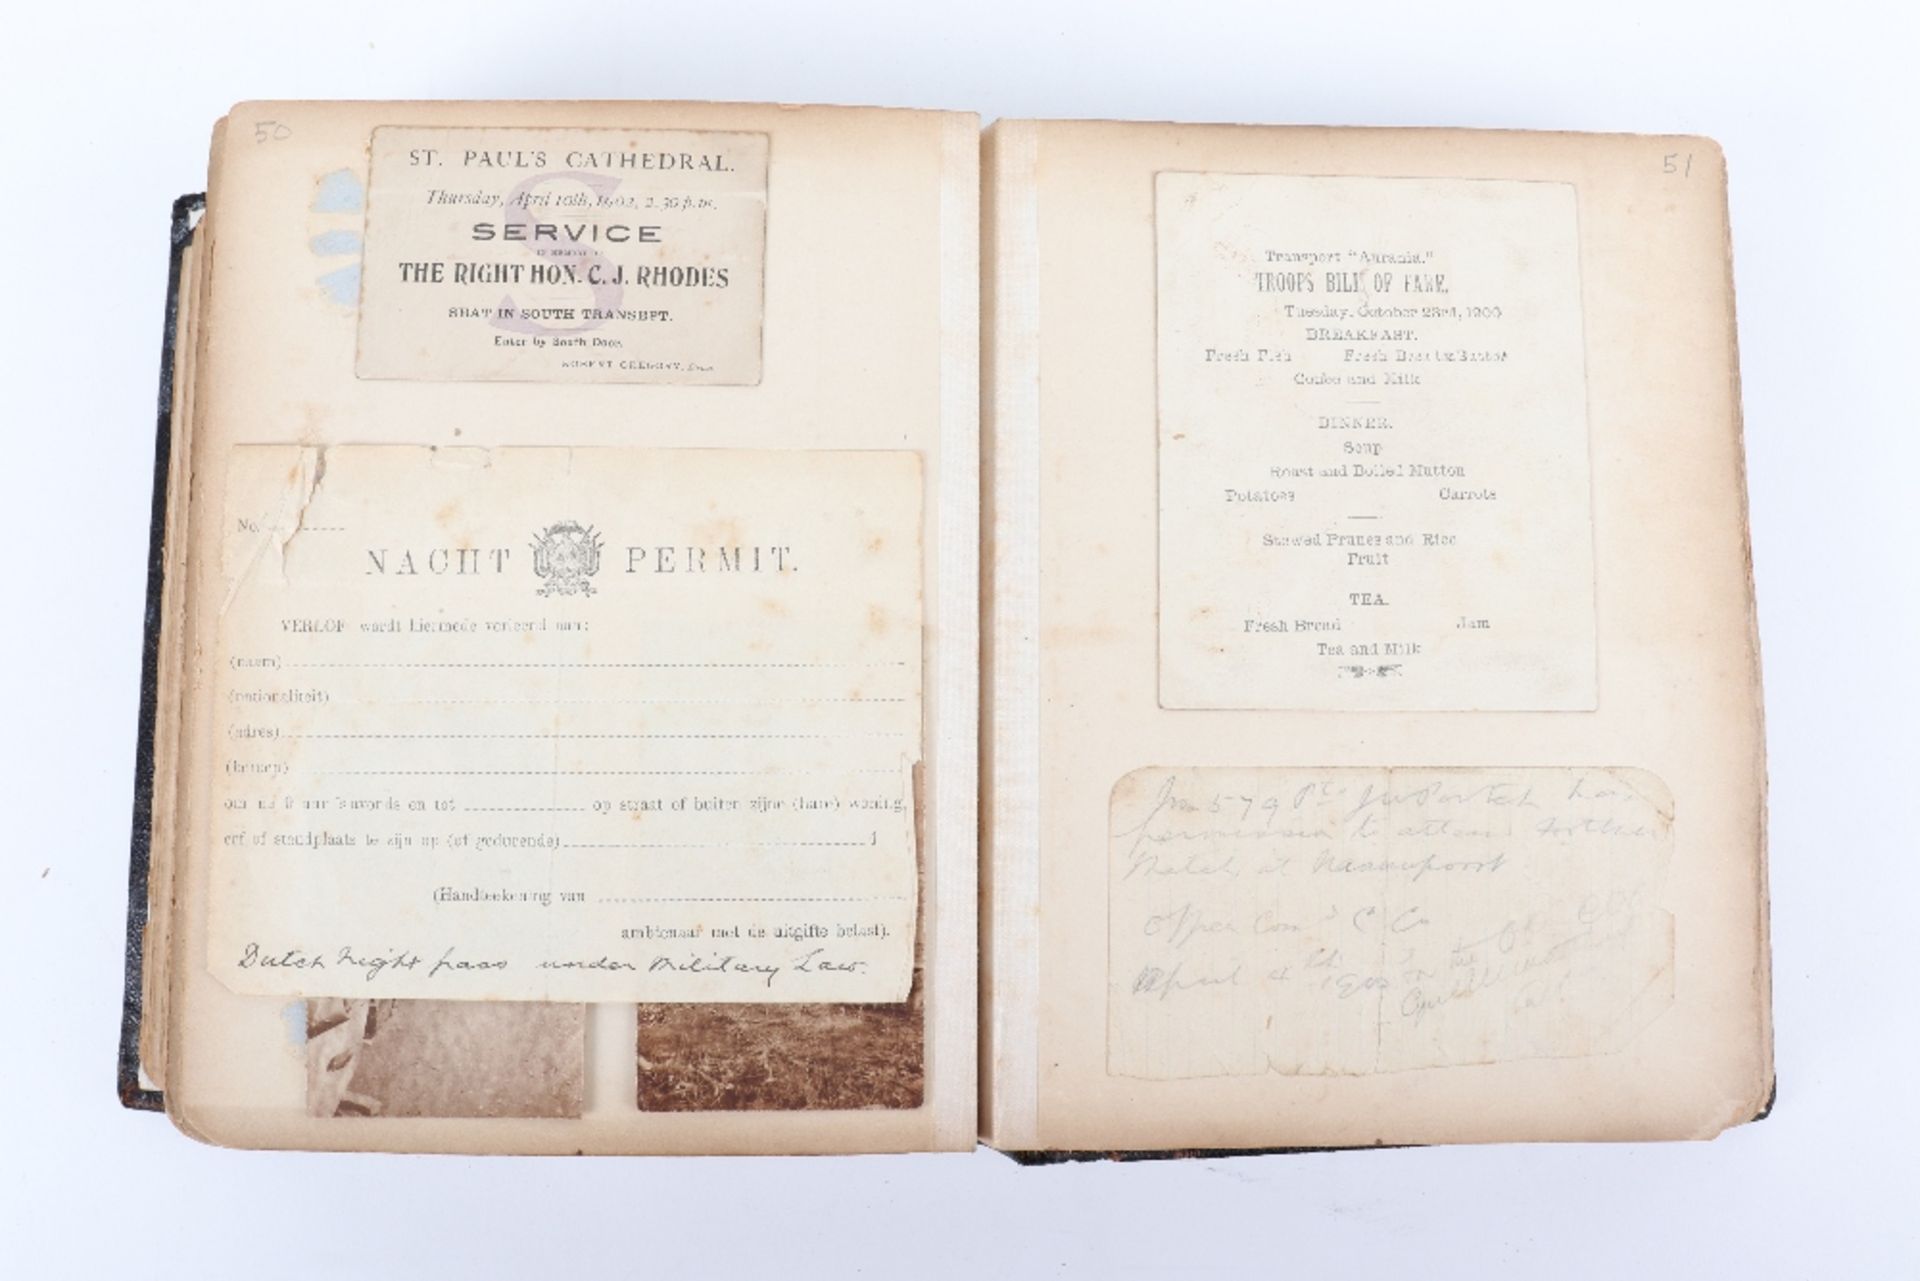 50
ST. PAUL'S CATHEDRAL.
Thursday, April 10th, 1902, 2.30 p.m.
SERVICE
IN MEMORY OF
THE RIGHT HON. C. J. RHODES
SEAT IN SOUTH TRANSEPT.
Enter by South Door.
ROBERT GREGORY, Dean
S
No.
NACHT PERMIT.
VERLOF wordt hiermede verleend aan:
(naam)
(nationaliteit)
(adres)
(beroep)
om na 9 uur 's avonds en tot op straat of buiten zijne (hare) woning,
erf of standplaats te zijn op (of gedurende) 1
(Handteekening van
ambtenaar met de uitgifte belast).
Dutch night pass under Military Law.
51
Transport "Aurania."
TROOPS BILL OF FARE.
Tuesday, October 23rd, 1900
BREAKFAST.
Fresh Fish Fresh Bread & Butter
Coffee and Milk
DINNER.
Soup
Roast and Boiled Mutton
Potatoes Carrots
Stewed Prunes and Rice
Fruit
TEA.
Fresh Bread Jam
Tea and Milk
579 Pte J W Portch has
permission to attend Football
Match at Naauwpoort
Officer Com C Co
April 4th 1900